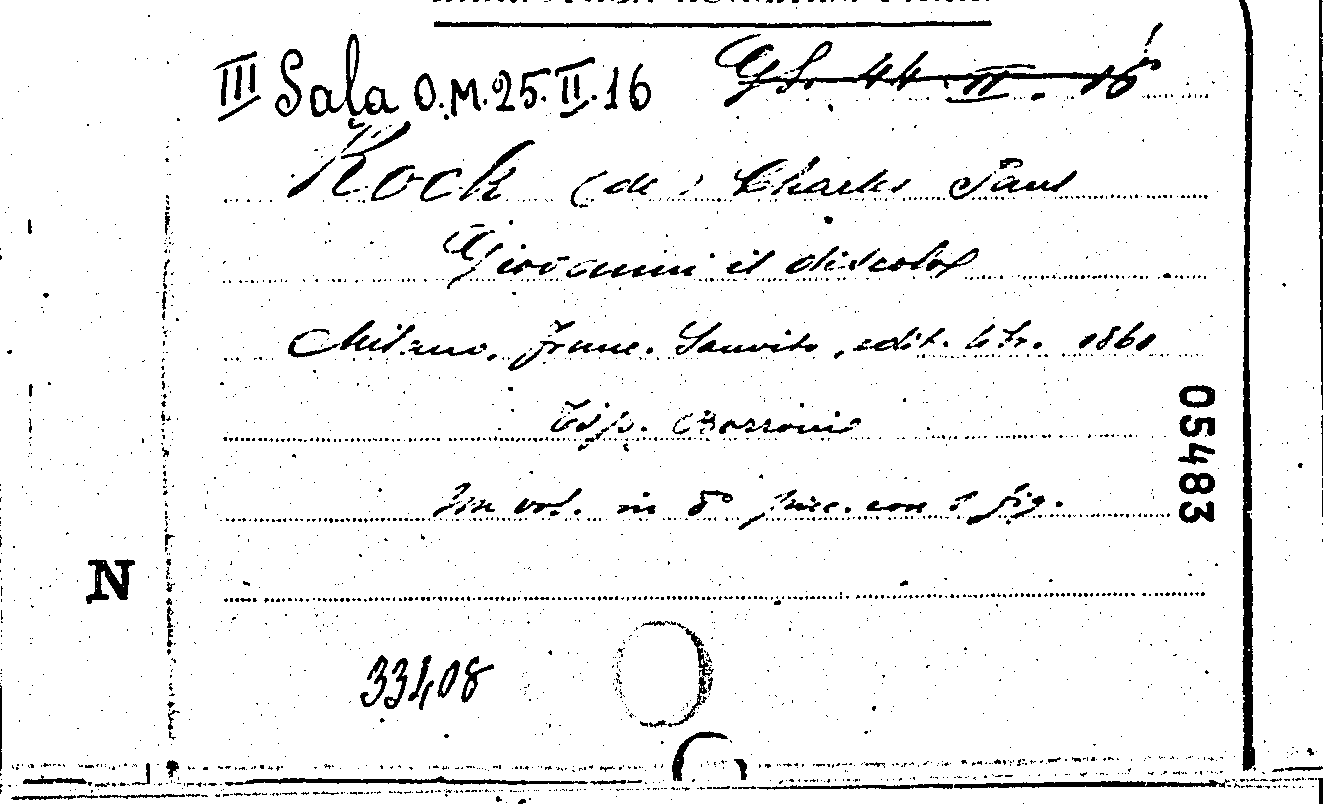 III Sala O.M.25.II.16 GS. 44.II.16
Kock (de) Charles Paul
Giovanni il discolo
Milano, Franc. Sanvito, edit. libr. 1861
Tip. Borroni
Un vol. in 8° picc. con 1 fig.
05483
N
33408